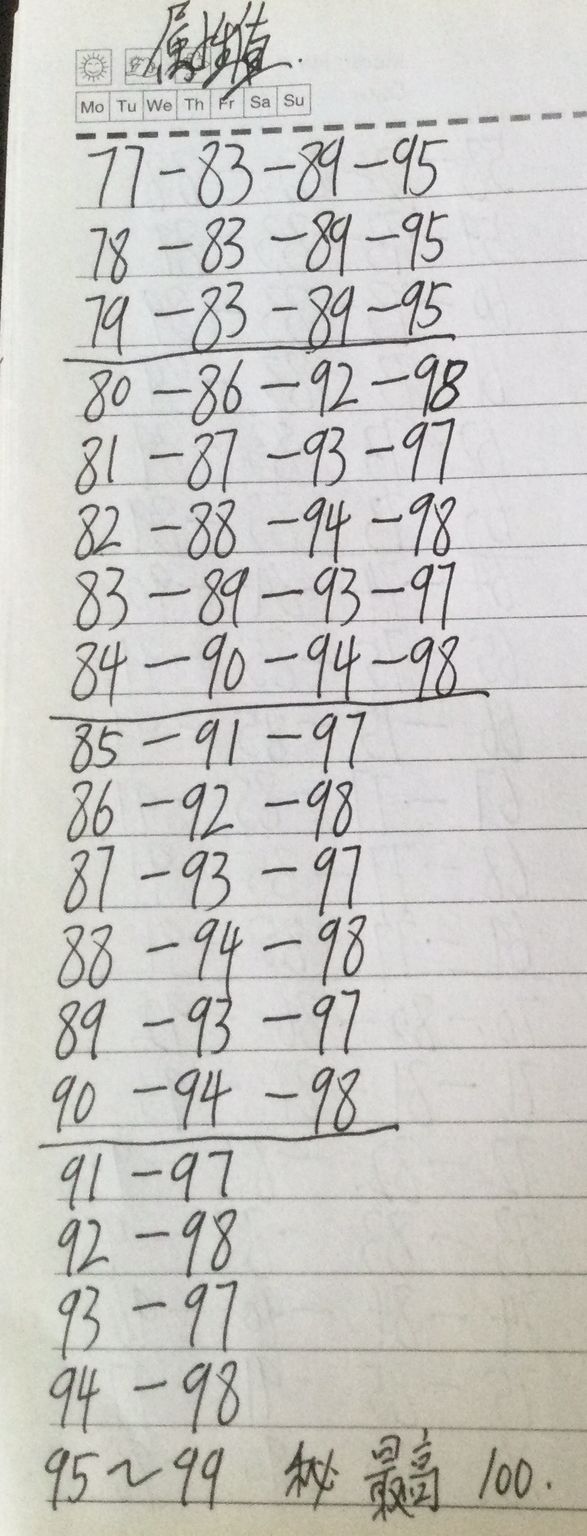 属性值.
Mo Tu We Th Fr Sa Su
77-83-89-95
78-83-89-95
79-83-89-95
80-86-92-98
81-87-93-97
82-88-94-98
83-89-93-97
84-90-94-98
85-91-97
86-92-98
87-93-97
88-94-98
89-93-97
90-94-98
91-97
92-98
93-97
94-98
95~99 秘 最高 100.